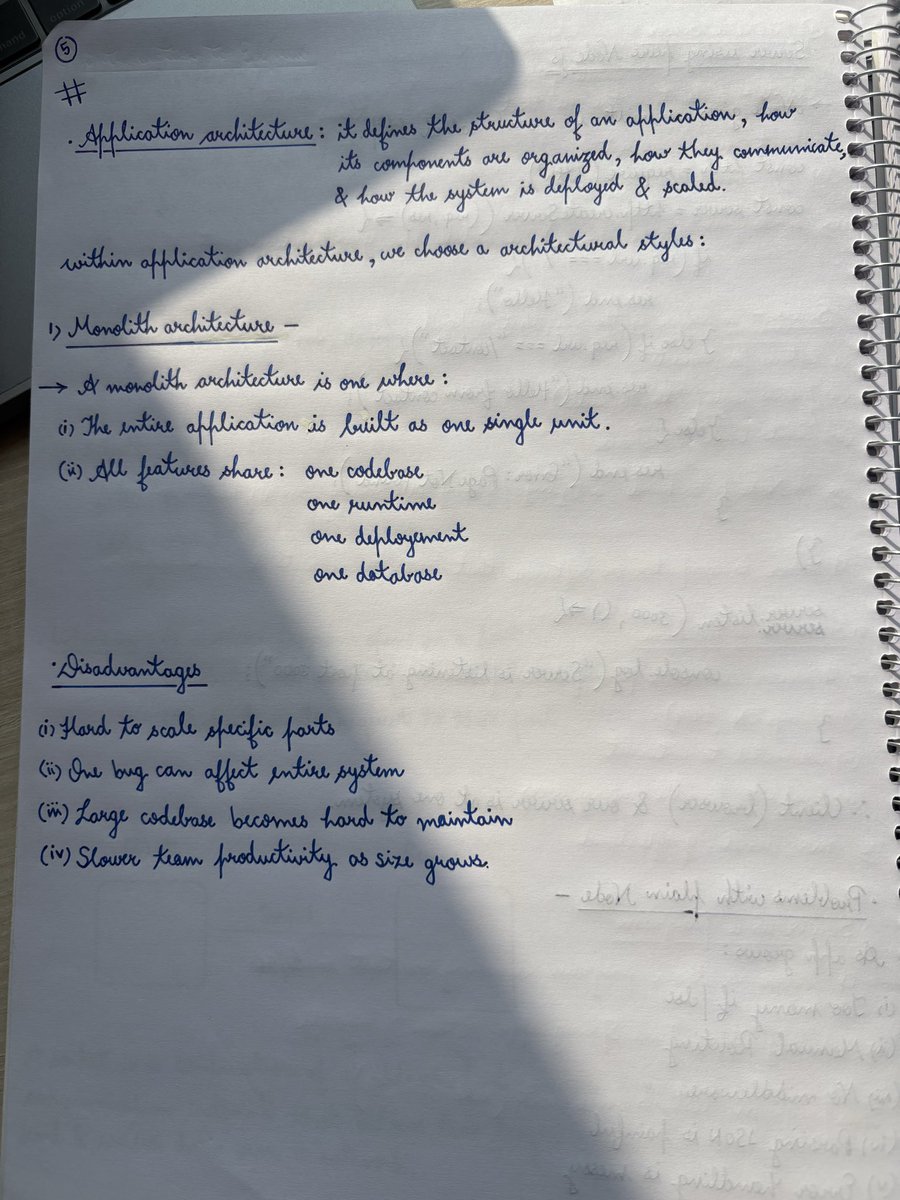 5
#
· Application architecture : it defines the structure of an application, how
its components are organized, how they communicate,
& how the system is deployed & scaled.
within application architecture, we choose a architectural styles :
1) Monolith architecture –
→ A monolith architecture is one where :
(i) The entire application is built as one single unit.
(ii) All features share : one codebase
one runtime
one deployement
one database
· Disadvantages
(i) Hard to scale specific parts
(ii) One bug can affect entire system
(iii) Large codebase becomes hard to maintain
(iv) Slower team productivity as size grows.